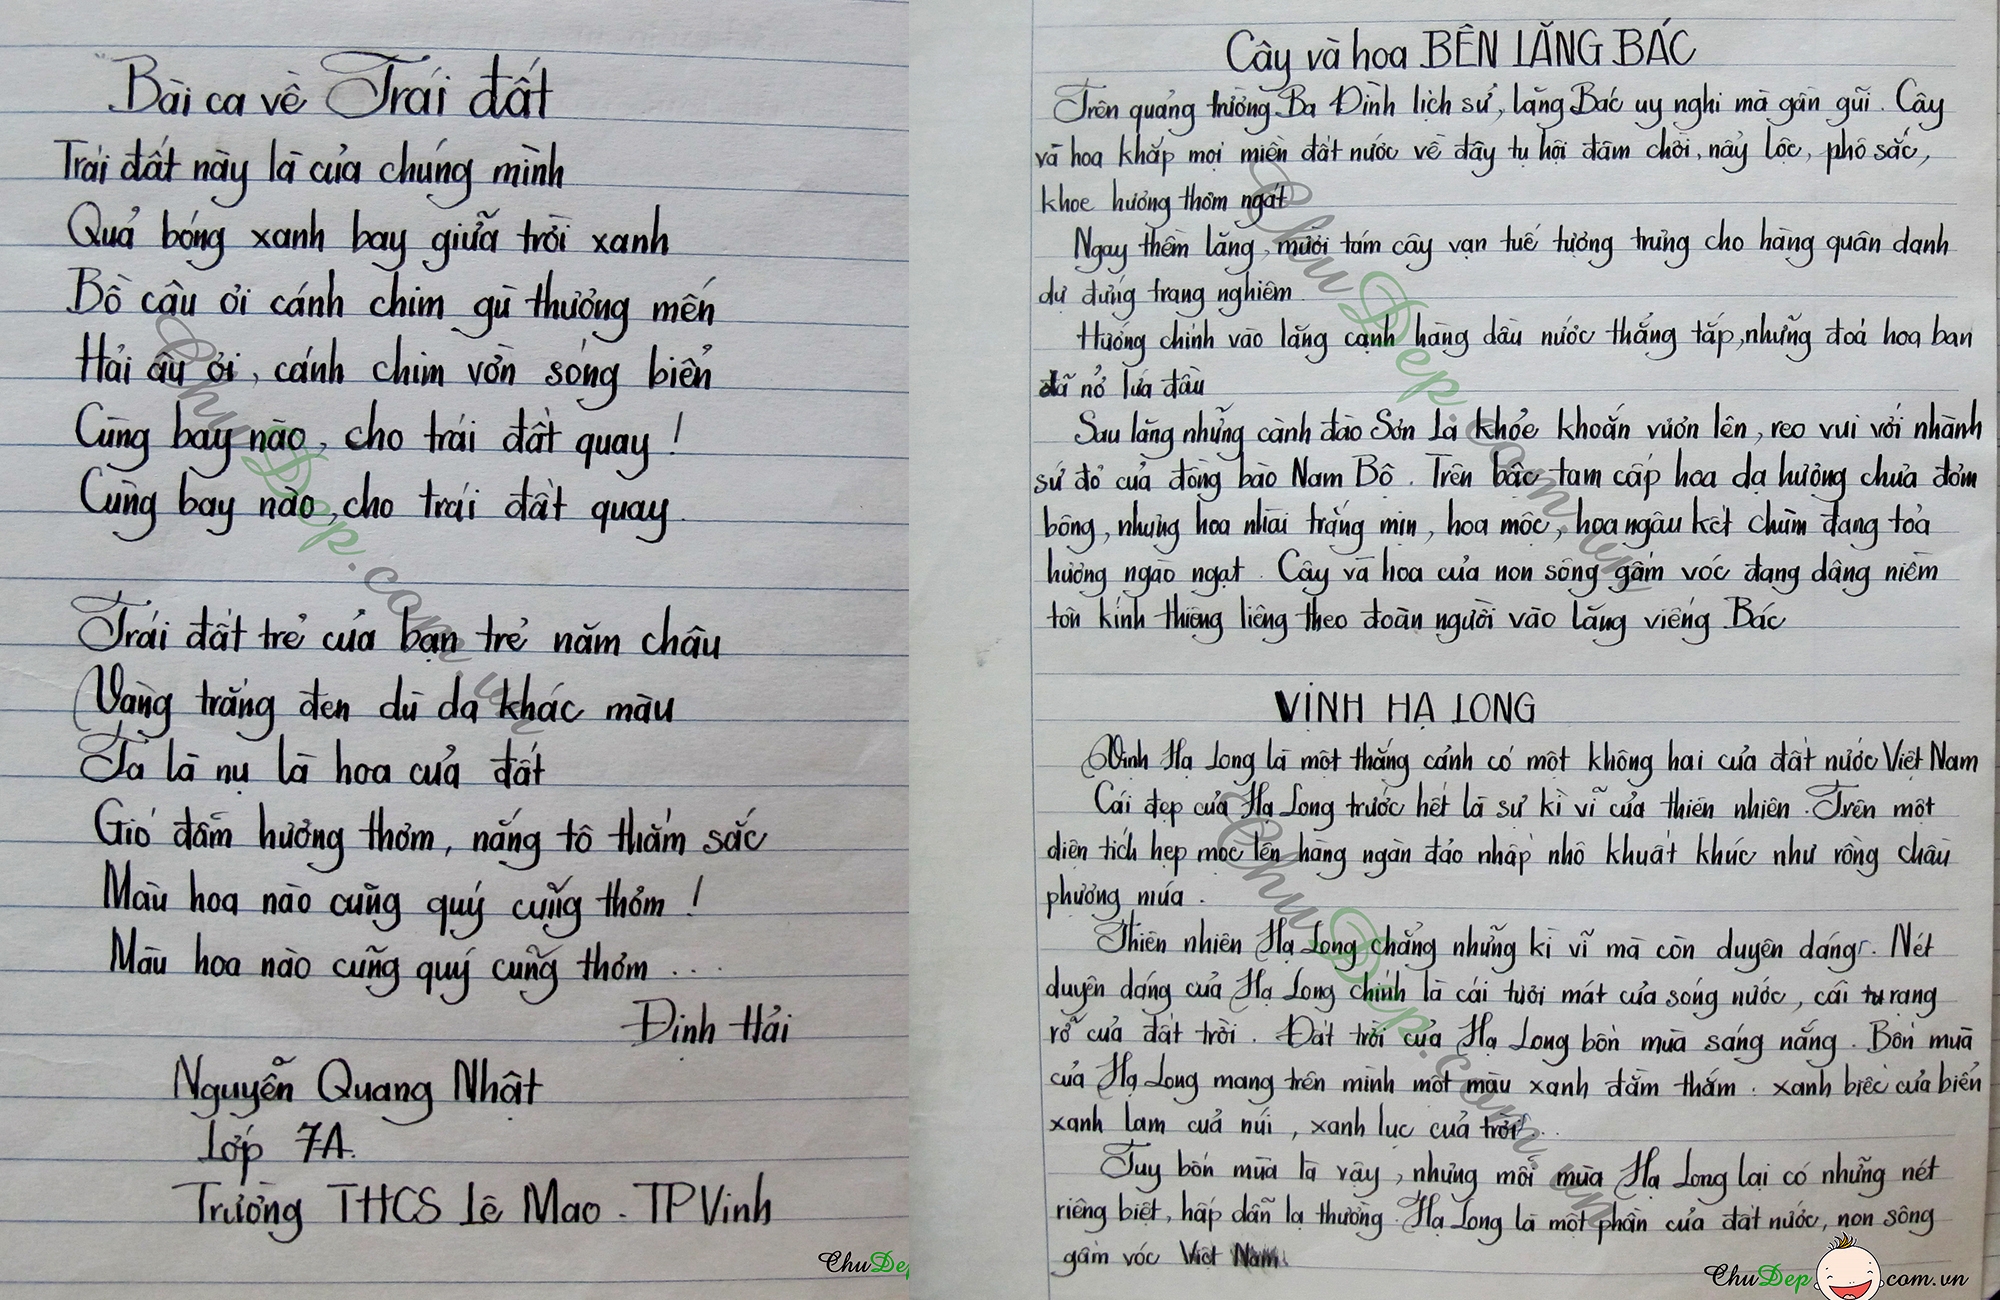 Bài ca về Trái đất
Trái đất này là của chúng mình
Quả bóng xanh bay giữa trời xanh
Bồ câu ơi cánh chim gù thương mến
Hải âu ơi, cánh chim vờn sóng biển
Cùng bay nào, cho trái đất quay !
Cùng bay nào, cho trái đất quay.
Trái đất trẻ của bạn trẻ năm châu
Vàng trắng đen dù da khác màu
Ta là nụ là hoa của đất
Gió đẫm hương thơm, nắng tô thắm sắc
Màu hoa nào cũng quý cũng thơm !
Màu hoa nào cũng quý cũng thơm ...
Định Hải
Nguyễn Quang Nhật
Lớp 7A.
Trường THCS Lê Mao - TP Vinh
ChuDep
Cây và hoa BÊN LĂNG BÁC
Trên quảng trường Ba Đình lịch sử, lăng Bác uy nghi mà gần gũi. Cây
và hoa khắp mọi miền đất nước về đây tụ hội đâm chồi, nảy lộc, phô sắc,
khoe hương thơm ngát
Ngay thềm lăng, mười tám cây vạn tuế tượng trưng cho hàng quân danh
dự đứng trang nghiêm.
Hướng chính vào lăng cạnh hàng dầu nước thẳng tắp, những đoá hoa ban
đã nở lứa đầu
Sau lăng những cành đào Sơn La khỏe khoắn vươn lên, reo vui với nhành
sứ đỏ của đồng bào Nam Bộ. Trên bậc tam cấp hoa dạ hương chưa đơm
bông, nhưng hoa nhài trắng mịn, hoa mộc, hoa ngâu kết chùm đang toả
hương ngào ngạt. Cây và hoa của non sông gấm vóc đang dâng niềm
tôn kính thiêng liêng theo đoàn người vào lăng viếng Bác
VỊNH HẠ LONG
Vịnh Hạ Long là một thắng cảnh có một không hai của đất nước Việt Nam
Cái đẹp của Hạ Long trước hết là sự kì vĩ của thiên nhiên. Trên một
diện tích hẹp mọc lên hàng ngàn đảo nhấp nhô khuất khúc như rồng chầu
phượng múa.
Thiên nhiên Hạ Long chẳng những kì vĩ mà còn duyên dáng. Nét
duyên dáng của Hạ Long chính là cái tươi mát của sóng nước, cái rạng
rỡ của đất trời. Đất trời của Hạ Long bốn mùa sáng nắng. Bốn mùa
của Hạ Long mang trên mình một màu xanh đằm thắm: xanh biếc của biển
xanh lam của núi, xanh lục của trời..
Tuy bốn mùa là vậy, nhưng mỗi mùa Hạ Long lại có những nét
riêng biệt, hấp dẫn lạ thường. Hạ Long là một phần của đất nước, non sông
gấm vóc Việt Nam.
ChuDep.com.vn